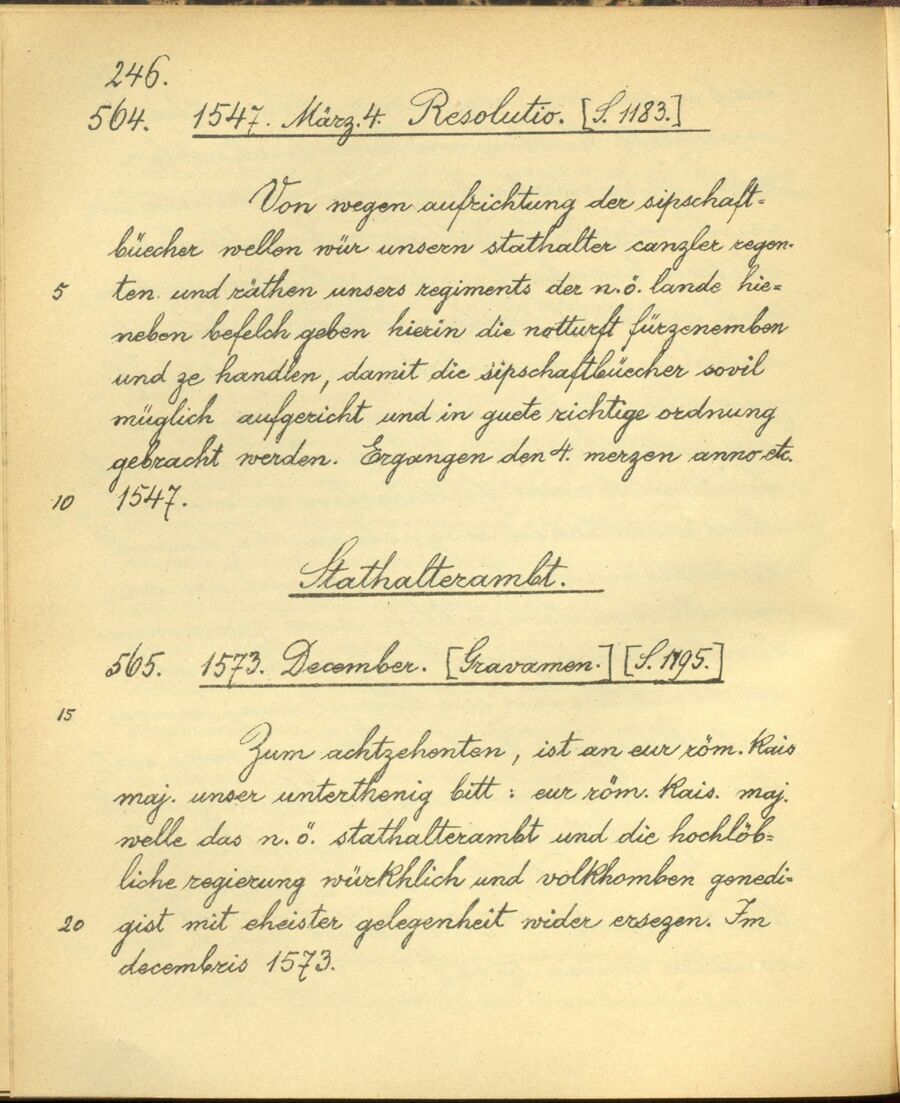 246.
564. 1547. März. 4. Resolutio. [S. 1183.]
Von wegen aufrichtung der sipschaft=
büecher wellen wür unsern stathalter canzler regen-
5 ten und räthen unsers regiments der n. ö. lande hie=
neben befelch geben hierin die notturft fürzenemben
und ze handlen, damit die sipschaftbüecher sovil
müglich aufgericht und in guete richtige ordnung
gebracht werden. Ergangen den 4. merzen anno etc.
10 1547.
Stathalterambt.
565. 1573. December. [Gravamen.] [S. 1195.]
15
Zum achtzehenten, ist an eur röm. Kais
maj. unser unterthenig bitt : eur röm. Kais. maj.
welle das n. ö. stathalterambt und die hochlöb=
liche regierung würkhlich und volkhomben genedi-
20 gist mit eheister gelegenheit wider ersezen. Im
decembris 1573.